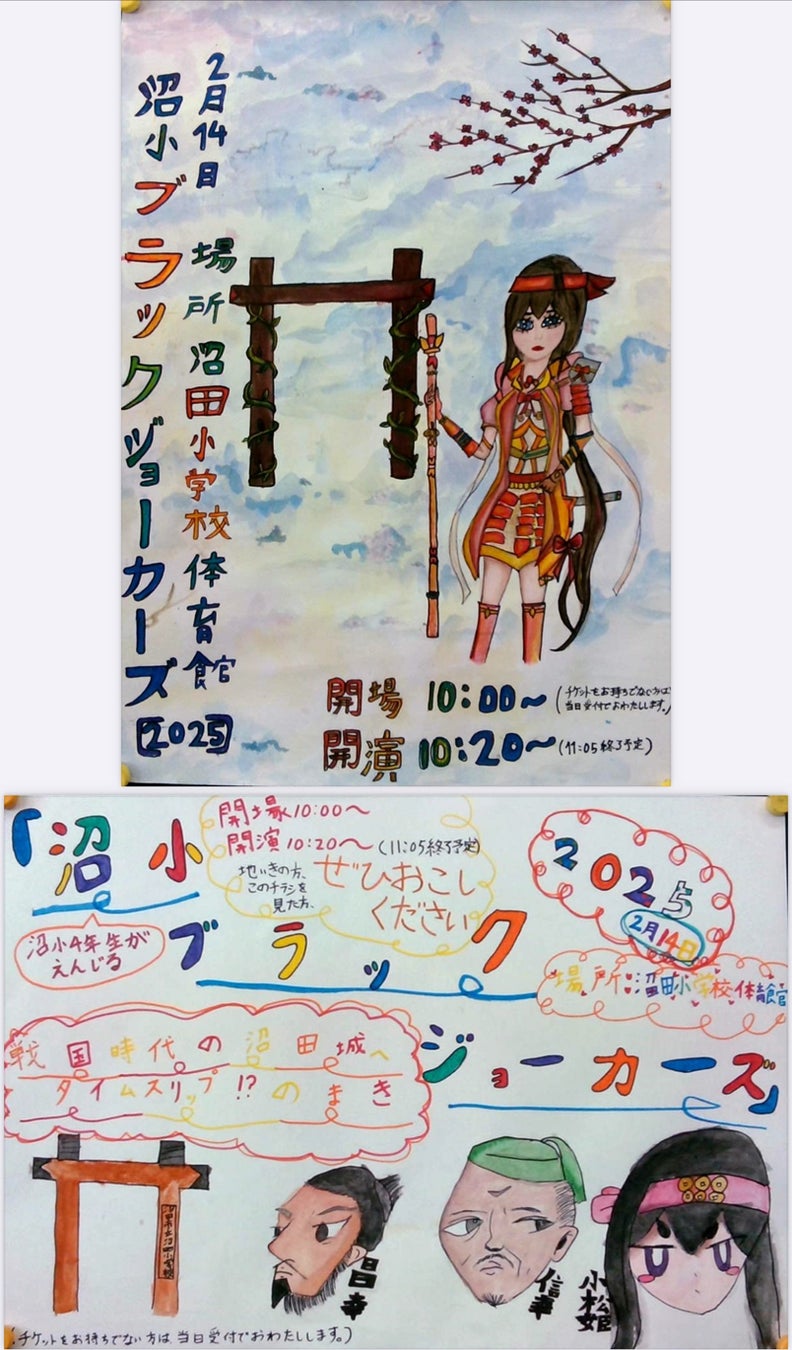 2月14日 場所 沼田小学校体育館
沼小ブラックジョーカーズ
【2025】
開場 10:00〜(チケットをお持ちでない方は
当日受付でおわたしします。)
開演 10:20〜(11:05終了予定)
「沼小
ブラック
ジョーカーズ」
開場10:00〜
開演10:20〜(11:05終了予定)
地いきの方、
このチラシを
見た方、
ぜひおこし
ください
2025
2月14日
場所 沼田小学校体育館
沼小4年生が
えんじる
戦国時代の沼田城へ
タイムスリップ!?のまき
昌幸
信幸
小松姫
(チケットをお持ちでない方は、当日受付でおわたしします。)